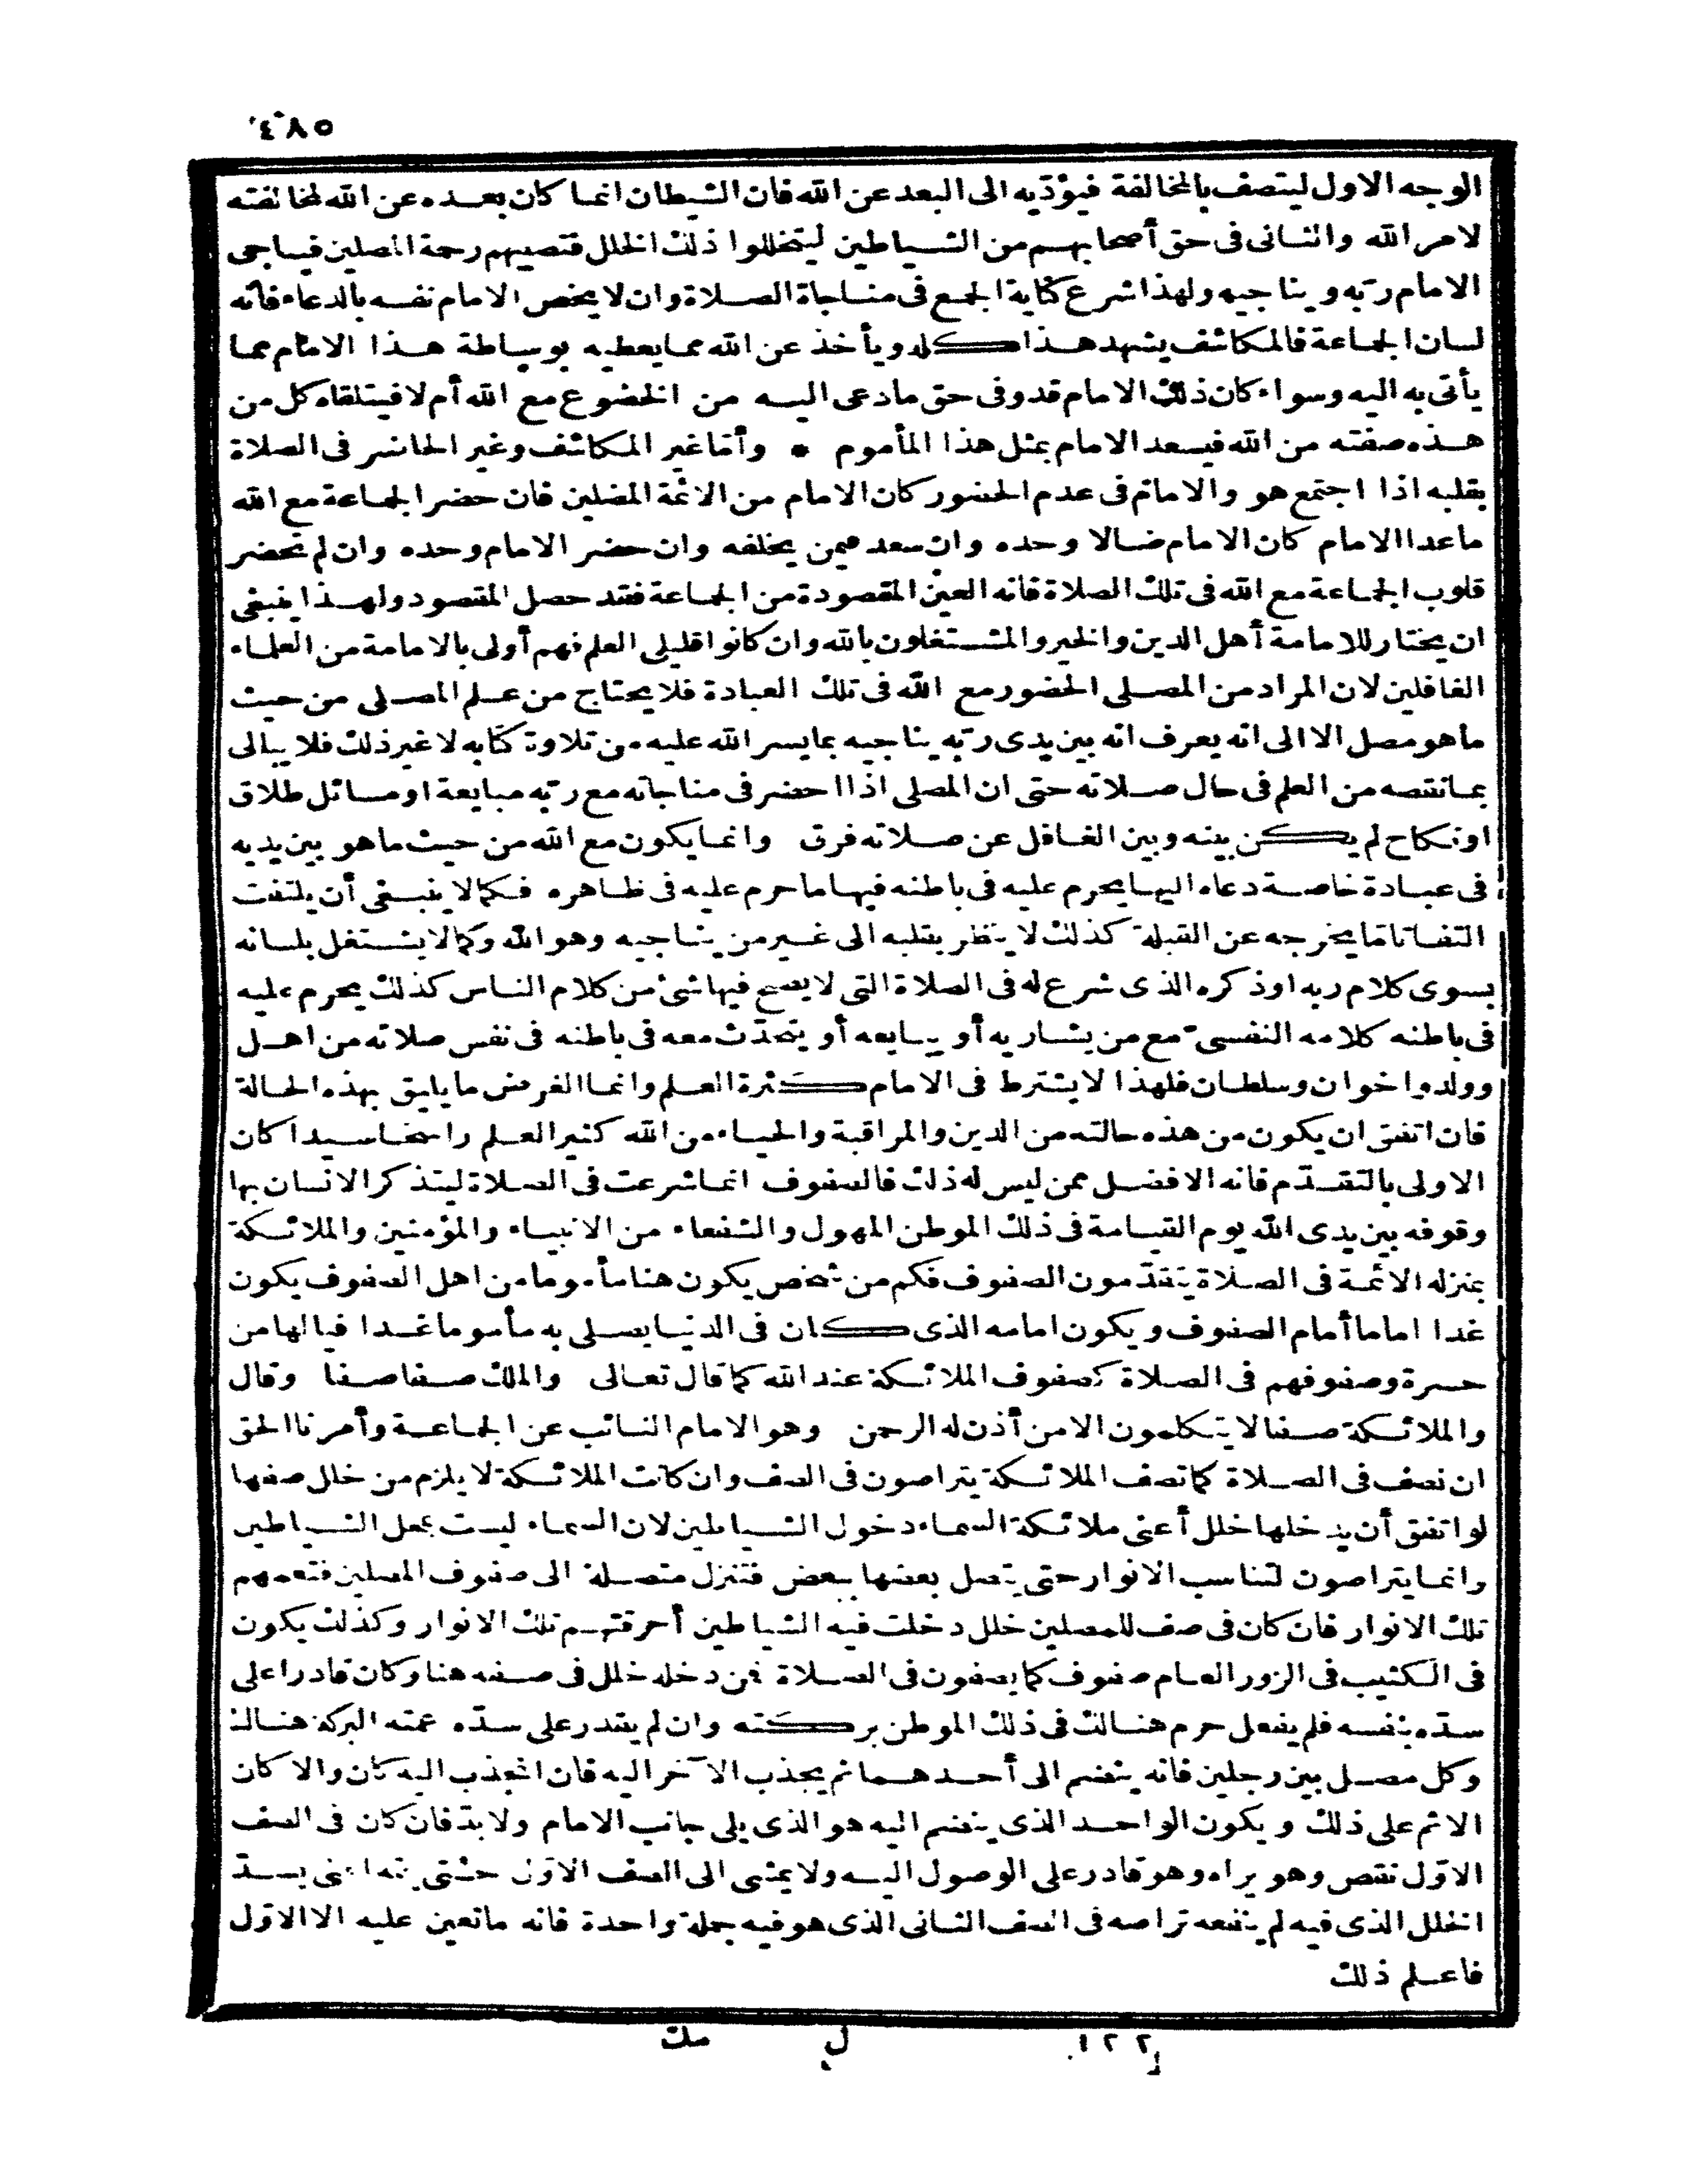 ٤٨٥
الوجه الاول ليتصف بالمخالفة فيؤديه الى البعد عن الله فان الشيطان انما كان بعده عن الله لمخالفته
لامر الله والثانى فى حق أصحابهم من الشياطين ليتخللوا ذلك الخلل فتصيبهم رحمة المصلين فيناجى
الامام ربه ويناجيه ولهذا شرع كناية الجمع فى مناجاة الصلاة وان لا يخص الامام نفسه بالدعاء فانه
لسان الجماعة فالمكاشف يشهد هذا كله ويأخذ عن الله مما يعطيه بوساطة هذا الامام مما
يأتى به اليه وسواء كان ذلك الامام قد وفى حق ما دعى اليه من الخضوع مع الله أم لا فيتلقاه كل من
هذه صفته من الله فيسعد الامام بمثل هذا المأموم * وأما غير المكاشف وغير الحاضر فى الصلاة
بقلبه اذا اجتمع هو والامام فى عدم الحضور كان الامام من الائمة المضلين فان حضر الجماعة مع الله
ما عدا الامام كان الامام ضالا وحده وان سعد فمن يخلفه وان حضر الامام وحده وان لم تحضر
قلوب الجماعة مع الله فى تلك الصلاة فانه العين المقصودة من الجماعة فقد حصل المقصود ولهذا ينبغى
ان يختار للامامة أهل الدين والخير والمشتغلون بالله وان كانوا قليلى العلم فهم أولى بالامامة من العلماء
الغافلين لان المراد من المصلى الحضور مع الله فى تلك العبادة فلا يحتاج من علم المصلى من حيث
ما هو مصل الا الى انه يعرف انه بين يدى ربه يناجيه بما يسر الله عليه من تلاوة كتابه لا غير ذلك فلا يبالى
بما نقصه من العلم فى حال صلاته حتى ان المصلى اذا احضر فى مناجاته مع ربه مبايعة او مسائل طلاق
او نكاح لم يكن بينه وبين الغافل عن صلاته فرق وانما يكون مع الله من حيث ما هو بين يديه
فى عبادة خاصة دعاه اليها يحرم عليه فى باطنه فيها ما حرم عليه فى ظاهره فكما لا ينبغى أن يلتفت
التفاتا ما يخرجه عن القبلة كذلك لا ينظر بقلبه الى غير من يناجيه وهو الله وكما لا يشتغل بلسانه
بسوى كلام ربه او ذكره الذى شرع له فى الصلاة التى لا يصح فيها شئ من كلام الناس كذلك يحرم عليه
فى باطنه كلامه النفسى مع من يشاربه أو يبايعه أو يتحدث معه فى باطنه فى نفس صلاته من اهل
وولد واخوان وسلطان فلهذا لا يشترط فى الامام كثرة العلم وانما الغرض ما يليق بهذه الحالة
فان اتفق ان يكون من هذه حالته من الدين والمراقبة والحياء من الله كثير العلم راسخا سيدا كان
الاولى بالتقدّم فانه الافضل ممن ليس له ذلك فالصفوف انما شرعت فى الصلاة ليتذكر الانسان بها
وقوفه بين يدى الله يوم القيامة فى ذلك الموطن المهول والشفعاء من الانبياء والمؤمنين والملائكة
بمنزله الائمة فى الصلاة يتقدّمون الصفوف فكم من شخص يكون هنا مأموما من اهل الصفوف يكون
غدا اماما أمام الصفوف ويكون امامه الذى كان فى الدنيا يصلى به مأموما غدا فيا لها من
حسرة وصفوفهم فى الصلاة كصفوف الملائكة عند الله كما قال تعالى والملك صفا صفا وقال
والملائكة صفا لا يتكلمون الا من أذن له الرحمن وهو الامام النائب عن الجماعة وأمرنا الحق
ان نصف فى الصلاة كما تصف الملائكة يتراصون فى الصف وان كانت الملائكة لا يلزم من خلل صفها
لو اتفق أن يدخلها خلل أعنى ملائكة السماء دخول الشياطين لان السماء ليست بمحل الشياطين
وانما يتراصون لتناسب الانوار حتى يتصل بعضها ببعض فتنزل متصلة الى صفوف المصلين فتعمهم
تلك الانوار فان كان فى صف للمصلين خلل دخلت فيه الشياطين أحرقتهم تلك الانوار وكذلك يكون
فى الكثيب فى الزور العام صفوف كما يصفون فى الصلاة فمن دخله خلل فى صفه هنا وكان قادرا على
سدّه بنفسه فلم يفعل حرم هنالك فى ذلك الموطن بركته وان لم يقدر على سدّه عمته البركة هنالك
وكل مصل بين رجلين فانه ينضم الى أحدهما ثم يجذب الآخر اليه فان انجذب اليه كان والا كان
الاثم على ذلك ويكون الواحد الذى ينضم اليه هو الذى يلى جانب الامام ولا بد فان كان فى الصف
الاوّل نقص وهو يراه وهو قادر على الوصول اليه ولا يمشى الى الصف الاوّل حتى يسدّ
الخلل الذى فيه لم ينفعه تراصه فى الصف الثانى الذى هو فيه جملة واحدة فانه ما تعين عليه الا الاوّل
فاعلم ذلك
١٢٢ ل مك